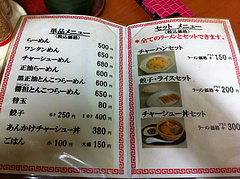 単品メニュー
(税込価格)
らーめん 500円
ワンタンめん 600円
チャーシューめん 800円
正油らーめん
黒正油とんこつらーめん 650円
醤担とんこつらーめん
替玉 80円
餃子 6ケ250円 400円
あんかけチャーシュー丼 380円
ごはん 小100円 大盛150円
セットメニュー
(税込価格)
*全てのラーメンとセットできます。
チャーハンセット
ラーメン価格+150円
餃子・ライスセット
ラーメン価格+200円
チャーシュー丼セット
ラーメン価格+300円